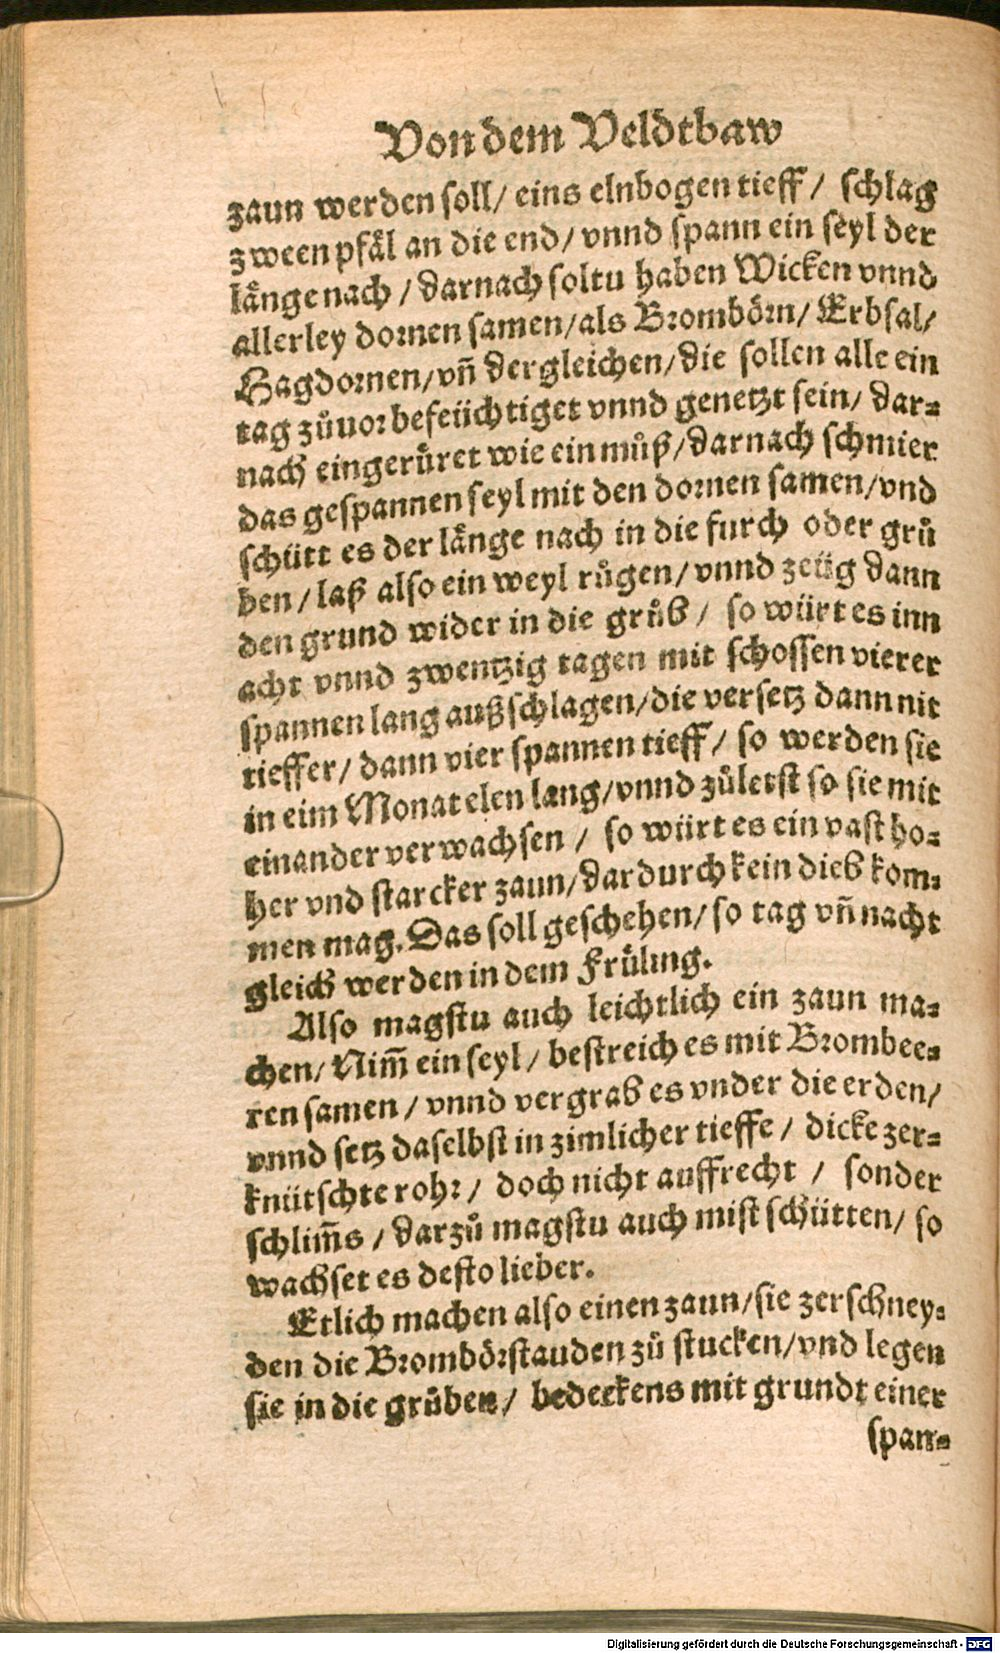 Von dem Veldtbaw
zaun werden soll/ eins elnbogen tieff/ schlag
zween pfäl an die end/ vnnd spann ein seyl der
länge nach / darnach soltu haben Wicken vnnd
allerley dornen samen/als Brombörn/ Erbsal/
Hagdornen/vñ dergleichen/die sollen alle ein
tag zůuor befeüchtiget vnnd genetzt sein/ dar-
nach eingerüret wie ein můß/darnach schmier
das gespannen seyl mit den dornen samen/vnd
schütt es der länge nach in die furch oder grů
ben/ laß also ein weyl růgen/ vnnd zeüg dann
den grund wider in die grůb/ so würt es inn
acht vnnd zwentzig tagen mit schossen vierer
spannen lang außschlagen/die versetz dann nit
tieffer/ dann vier spannen tieff/ so werden sie
in eim Monat elen lang/vnnd zůletst so sie mit
einander verwachsen / so würt es ein vast ho-
her vnd starcker zaun/dardurch kein dieb kom-
men mag. Das soll geschehen/ so tag vñ nacht
gleich werden in dem Früling.
Also magstu auch leichtlich ein zaun ma-
chen/ Nim̃ ein seyl/ bestreich es mit Brombee-
ren samen / vnnd vergrab es vnder die erden/
vnnd setz daselbst in zimlicher tieffe / dicke zer-
knütschte rohr/ doch nicht auffrecht / sonder
schlim̃s / darzů magstu auch mist schütten/ so
wachset es desto lieber.
Etlich machen also einen zaun/sie zerschney-
den die Brombörstauden zů stucken/vnd legen
sie in die grůben/ bedeckens mit grundt einer
span-
Digitalisierung gefördert durch die Deutsche Forschungsgemeinschaft - DFG